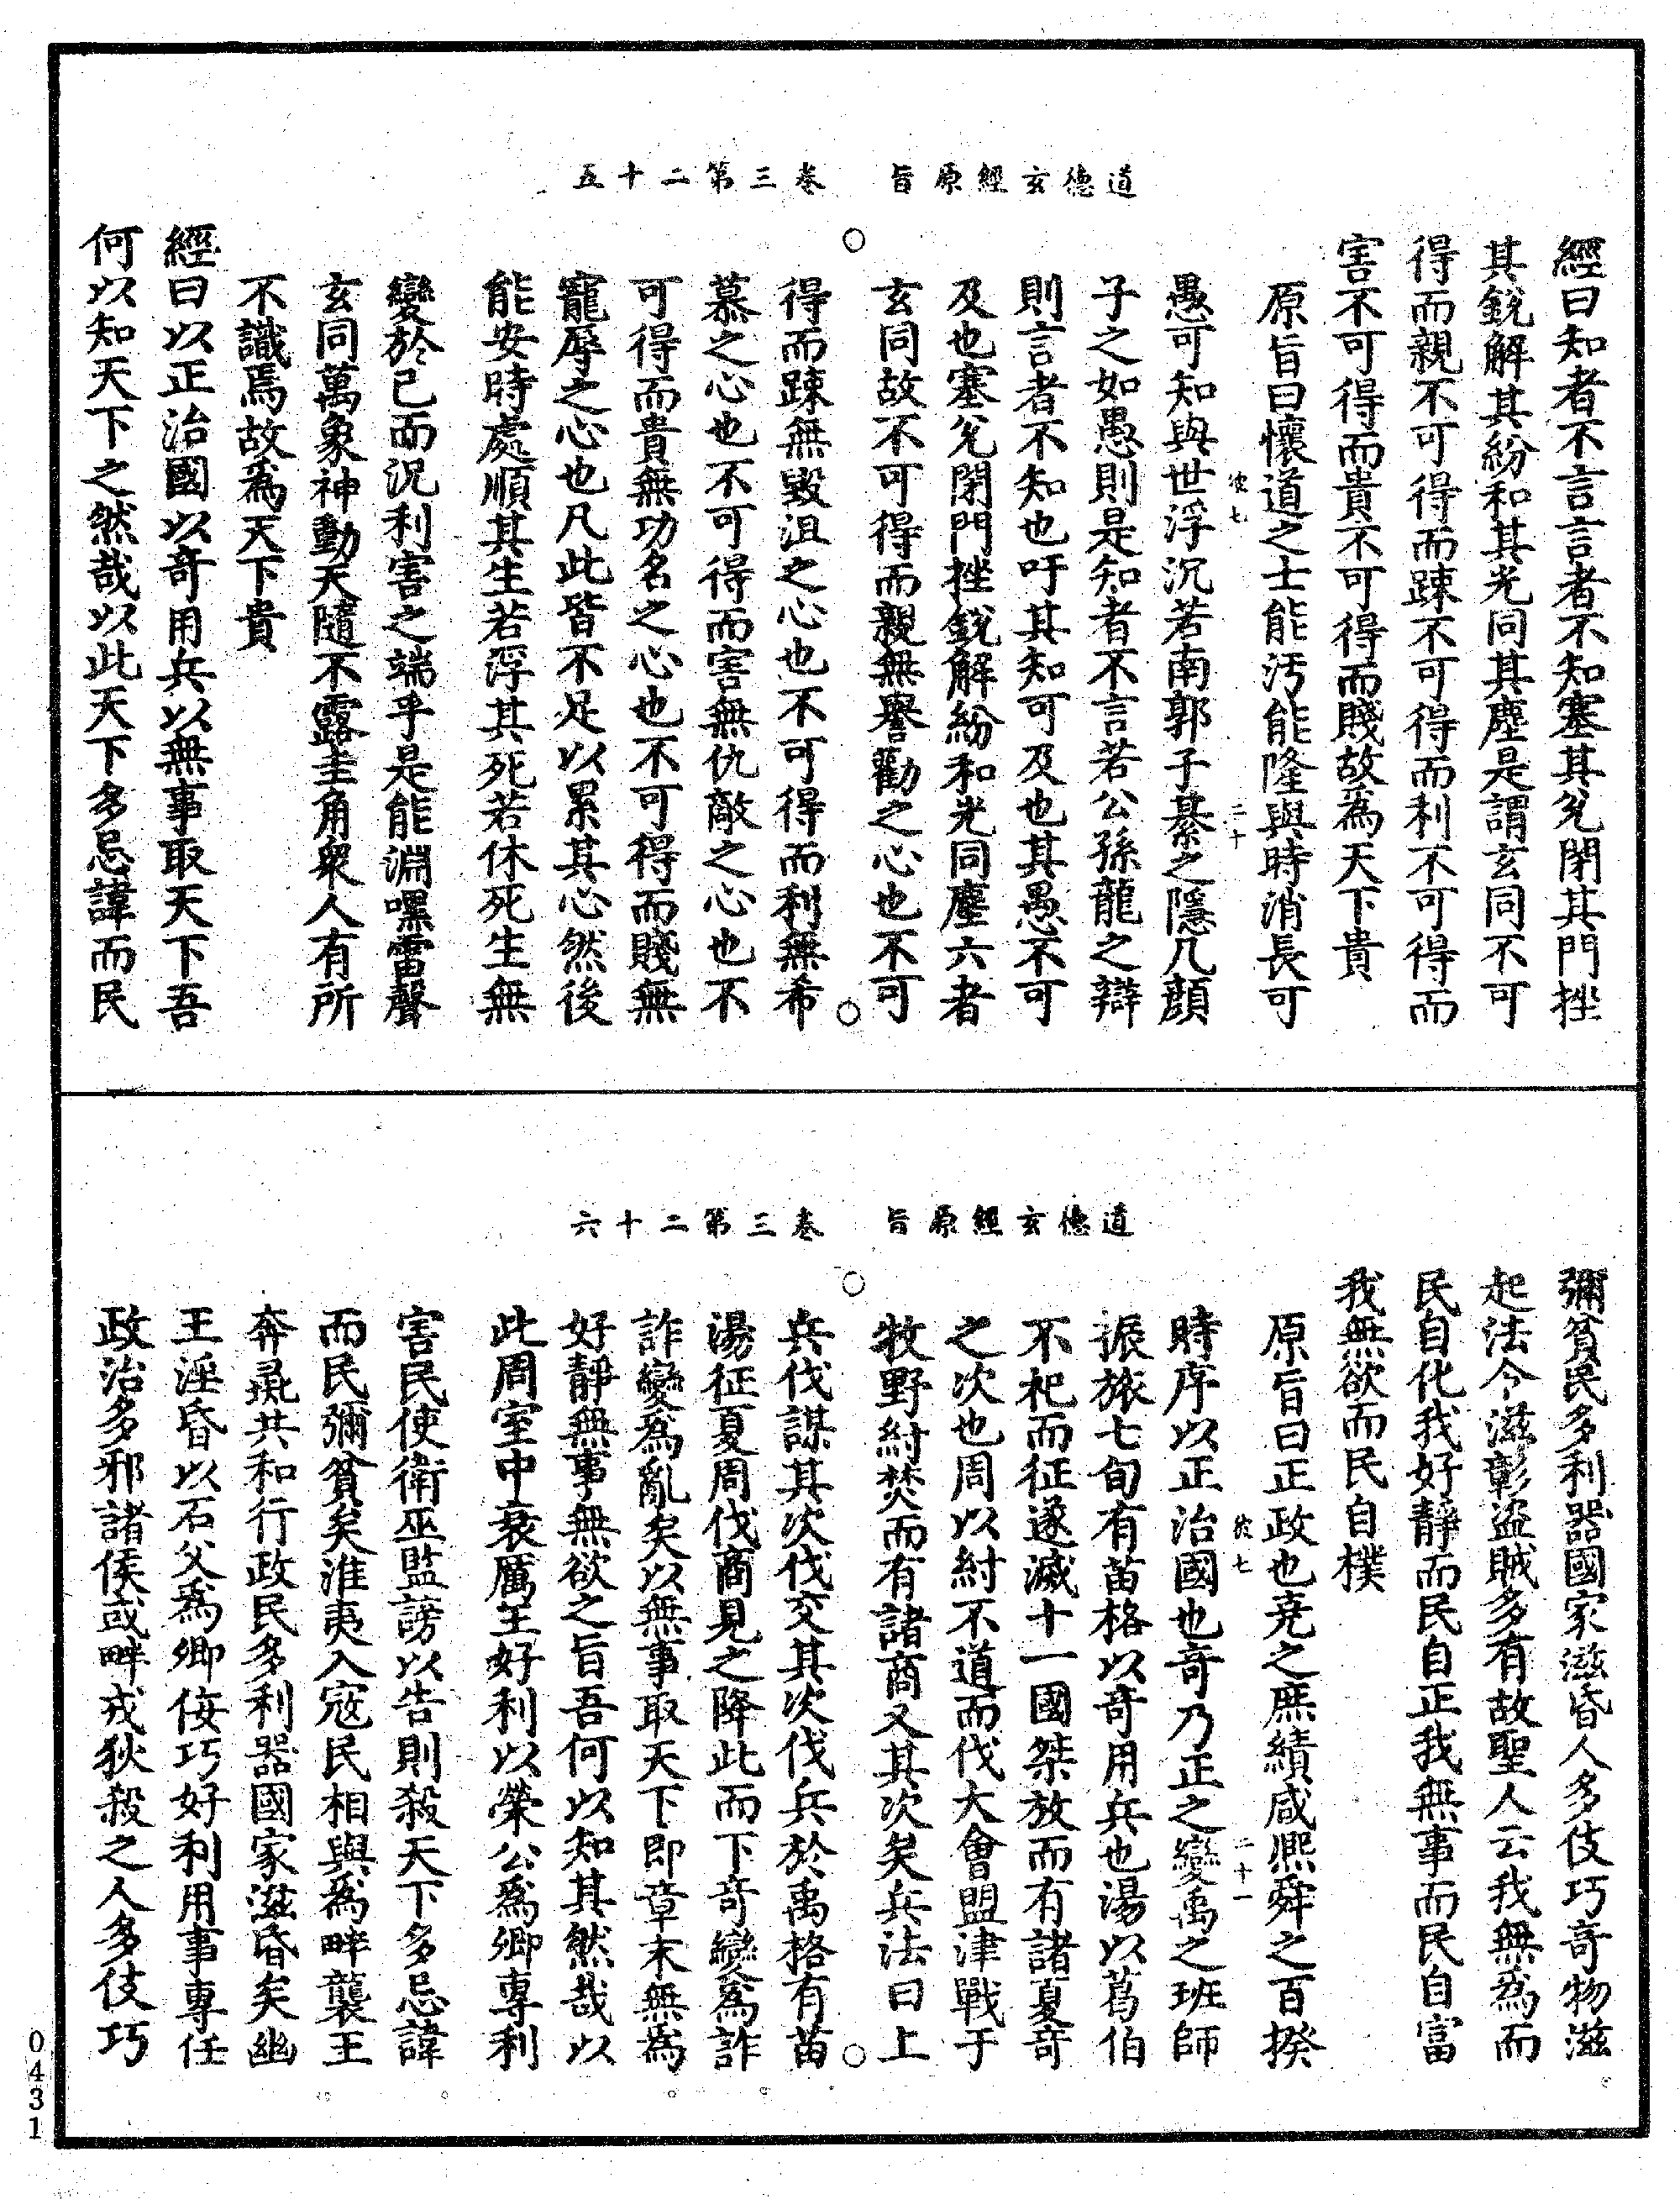 道德玄經原旨　卷三第二十五
經曰知者不言言者不知塞其兌閉其門挫
其銳解其紛和其光同其塵是謂玄同不可
得而親不可得而踈不可得而利不可得而
害不可得而貴不可得而賤故為天下貴
原旨曰懷道之士能汚能隆與時消長可
彼七　二十
愚可知與世浮沉若南郭子綦之隱几顔
子之如愚則是知者不言若公孫龍之辯
則言者不知也吁其知可及也其愚不可
及也塞兌閉門挫銳解紛和光同塵六者
玄同故不可得而親無譽勸之心也不可
得而踈無毀沮之心也不可得而利無希
慕之心也不可得而害無仇敵之心也不
可得而貴無功名之心也不可得而賤無
寵辱之心也凡此皆不足以累其心然後
能安時處順其生若浮其死若休死生無
變於已而況利害之端乎是能淵嘿雷聲
玄同萬象神動天隨不露圭角衆人有所
不識焉故為天下貴
經曰以正治國以奇用兵以無事取天下吾
何以知天下之然哉以此天下多忌諱而民
道德玄經原旨　卷三第二十六
彌貧民多利器國家滋昏人多伎巧奇物滋
起法令滋彰盜賊多有故聖人云我無為而
民自化我好靜而民自正我無事而民自富
我無欲而民自樸
原旨曰正政也堯之庶績咸熈舜之百揆
彼七　二十一
時序以正治國也奇乃正之變禹之班師
振旅七旬有苗格以奇用兵也湯以葛伯
不祀而征遂滅十一國桀放而有諸夏奇
之次也周以紂不道而伐大會盟津戰于
牧野紂焚而有諸商又其次矣兵法曰上
兵伐謀其次伐交其次伐兵於禹格有苗
湯征夏周伐商見之降此而下奇變為詐
詐變為亂矣以無事取天下即章末無為
好靜無事無欲之旨吾何以知其然哉以
此周室中衰厲王好利以榮公為卿專利
害民使衛巫監謗以告則殺天下多忌諱
而民彌貧矣淮夷入寇民相與為畔襲王
奔彘共和行政民多利器國家滋昏矣幽
王淫昏以石父為卿佞巧好利用事專任
政治多邪諸侯或畔戎狄殺之人多伎巧
0431